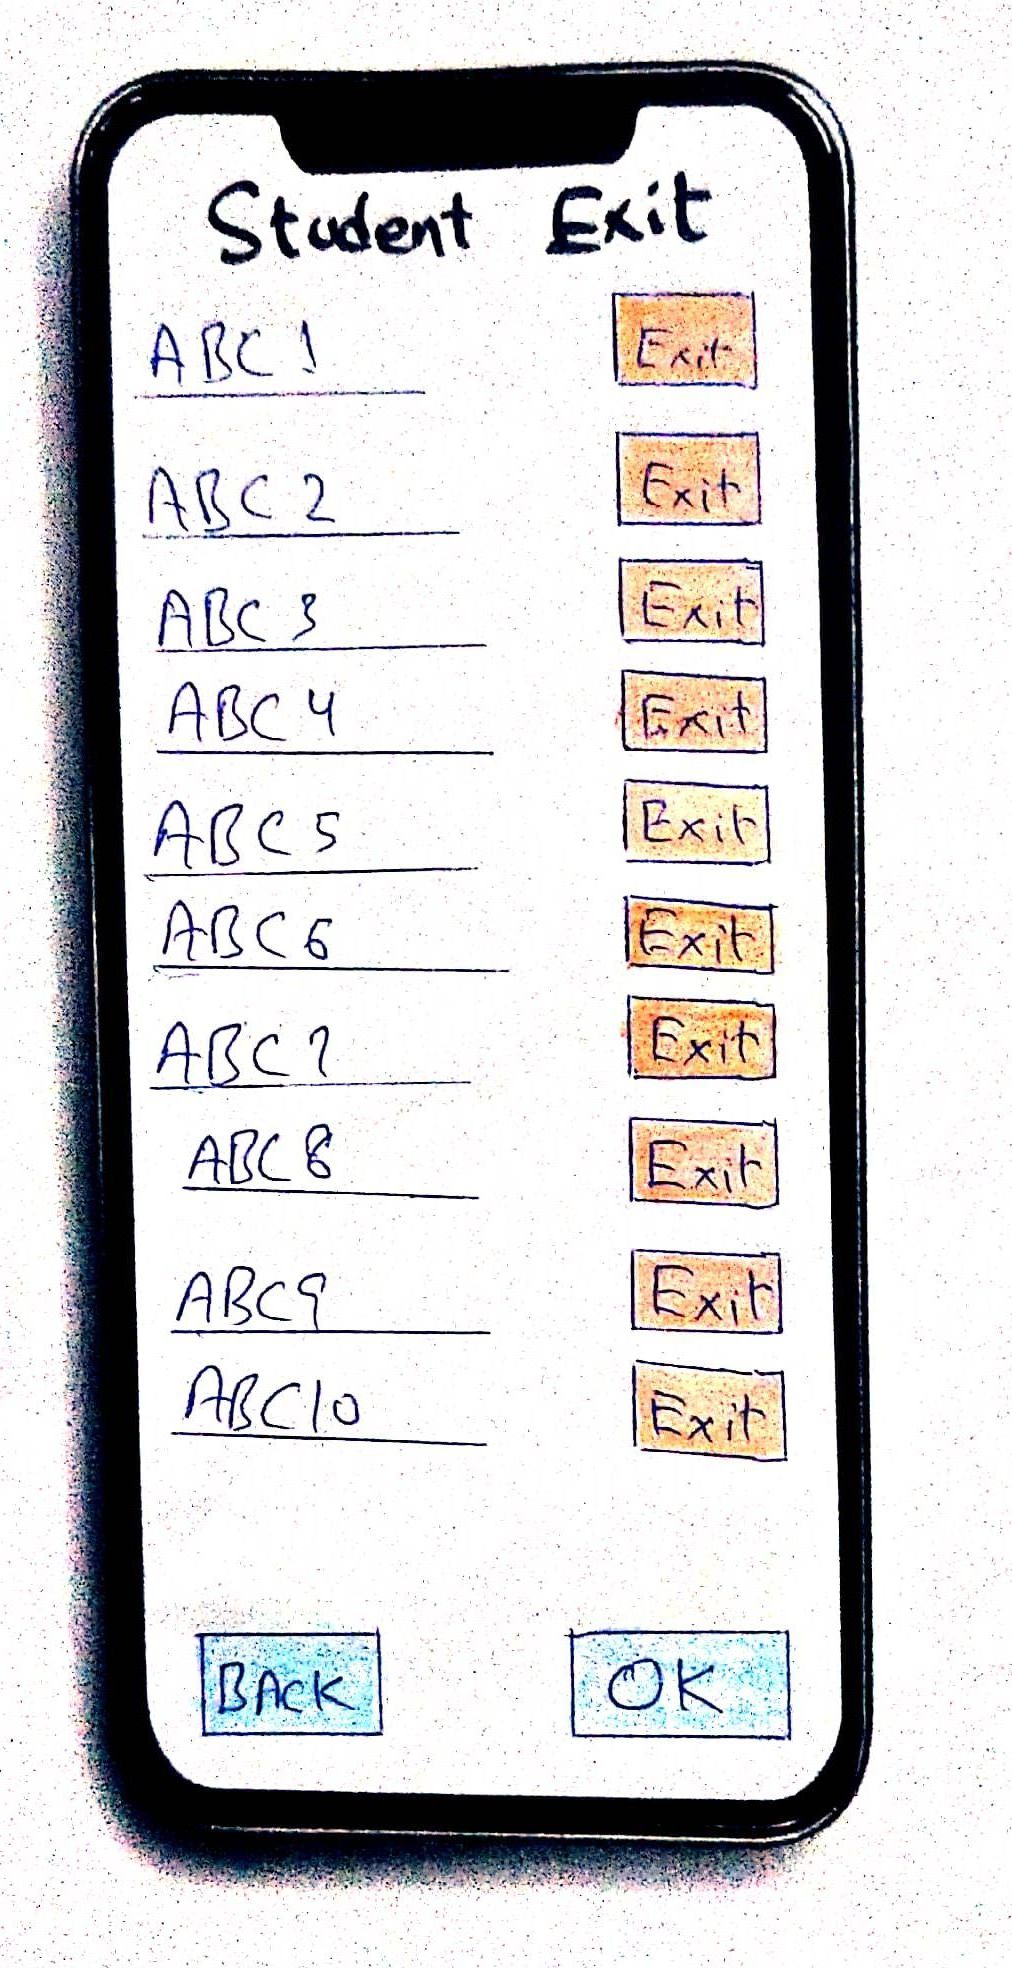 Student Exit
ABC 1 Exit
ABC 2 Exit
ABC 3 Exit
ABC 4 Exit
ABC 5 Exit
ABC 6 Exit
ABC 7 Exit
ABC 8 Exit
ABC 9 Exit
ABC 10 Exit
BACK OK